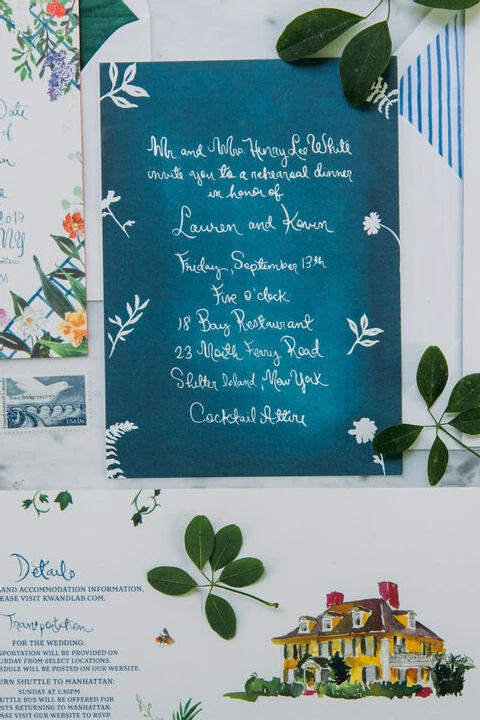 Date
of
2019
NY
Mr. and Mrs. Henry Lee White
invite you to a rehearsal dinner
in honor of
Lauren and Kevin
Friday, September 13th
Five o'clock
18 Bay Restaurant
23 North Ferry Road
Shelter Island, New York
Cocktail Attire
USA 13c
Details
AND ACCOMMODATION INFORMATION,
EASE VISIT KWANDLAB.COM.
Transportation
FOR THE WEDDING:
SPORTATION WILL BE PROVIDED ON
URDAY FROM SELECT LOCATIONS.
EDULE WILL BE POSTED ON OUR WEBSITE.
URN SHUTTLE TO MANHATTAN:
SUNDAY AT 1:30PM
UTTLE BUS WILL BE OFFERED FOR
STS RETURNING TO MANHATTAN.
ASE VISIT OUR WEBSITE TO RSVP